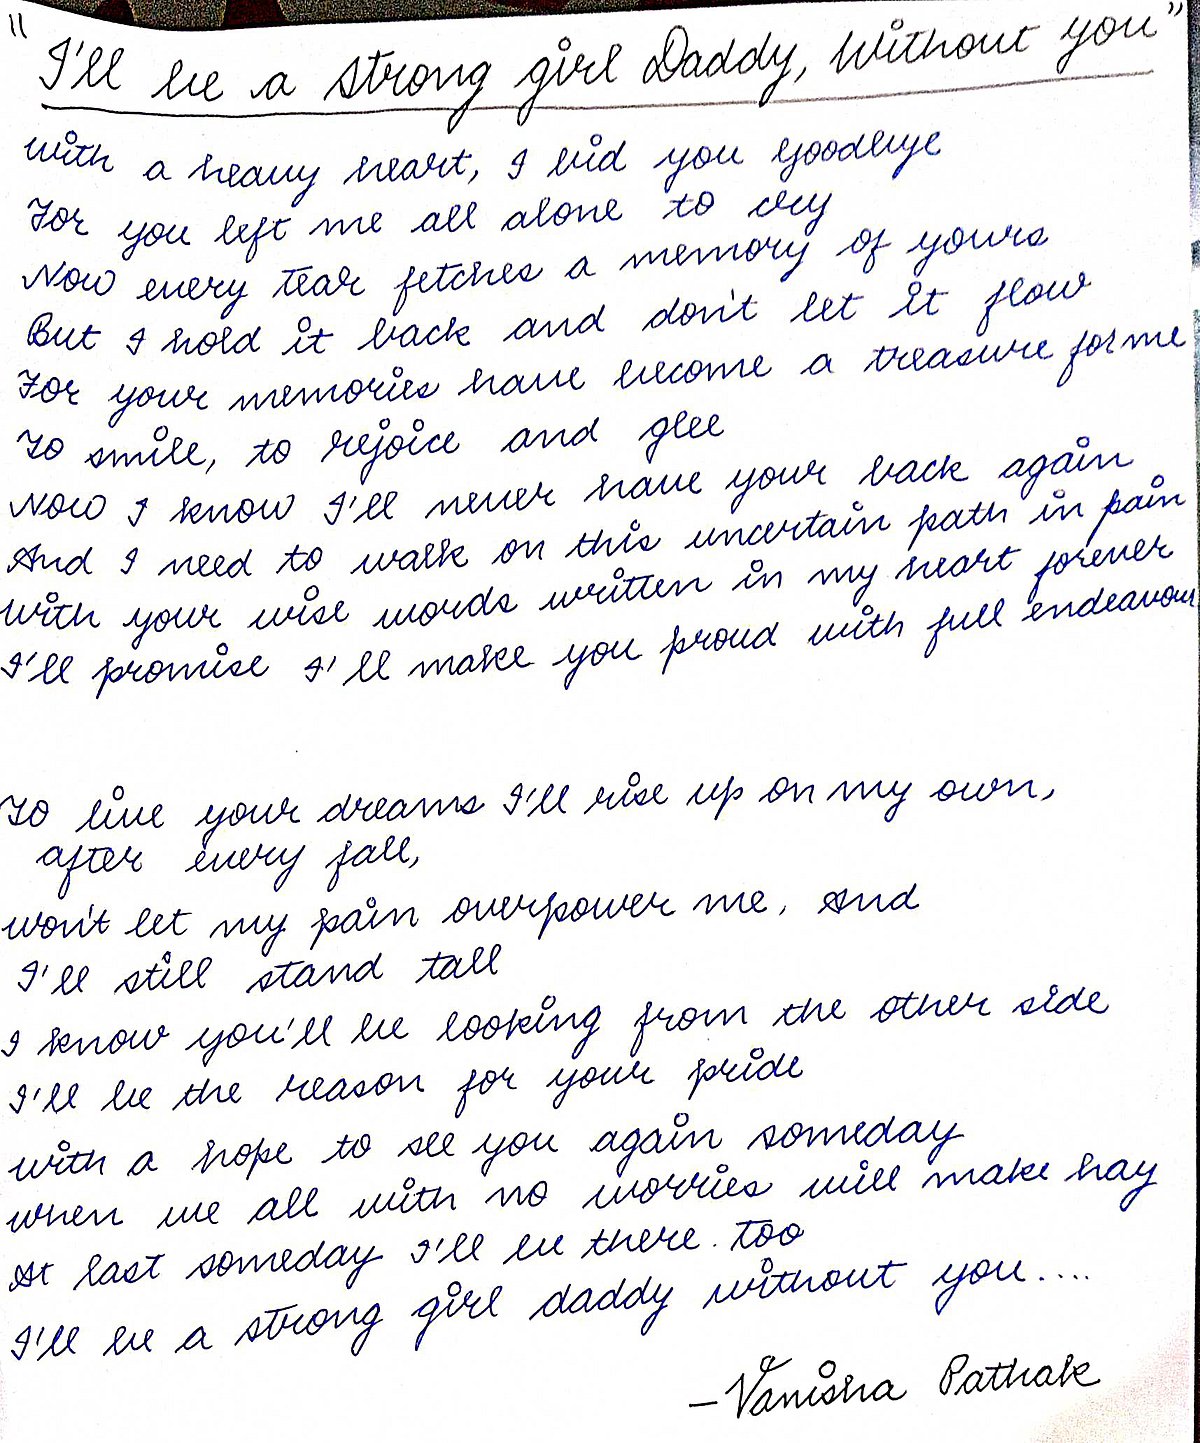 "I'll be a strong girl Daddy, without you"
with a heavy heart, I bid you goodbye
For you left me all alone to cry
Now every tear fetches a memory of yours
But I hold it back and don't let it flow
For your memories have become a treasure for me
To smile, to rejoice and glee
Now I know I'll never have your back again
And I need to walk on this uncertain path in pain
with your wise words written in my heart forever
I'll promise I'll make you proud with full endeavour
To live your dreams I'll rise up on my own,
after every fall,
won't let my pain overpower me, And
I'll still stand tall
I know you'll be looking from the other side
I'll be the reason for your pride
with a hope to see you again someday
when we all with no worries will make hay
At last someday I'll be there too
I'll be a strong girl daddy without you....
– Vanisha Pathak